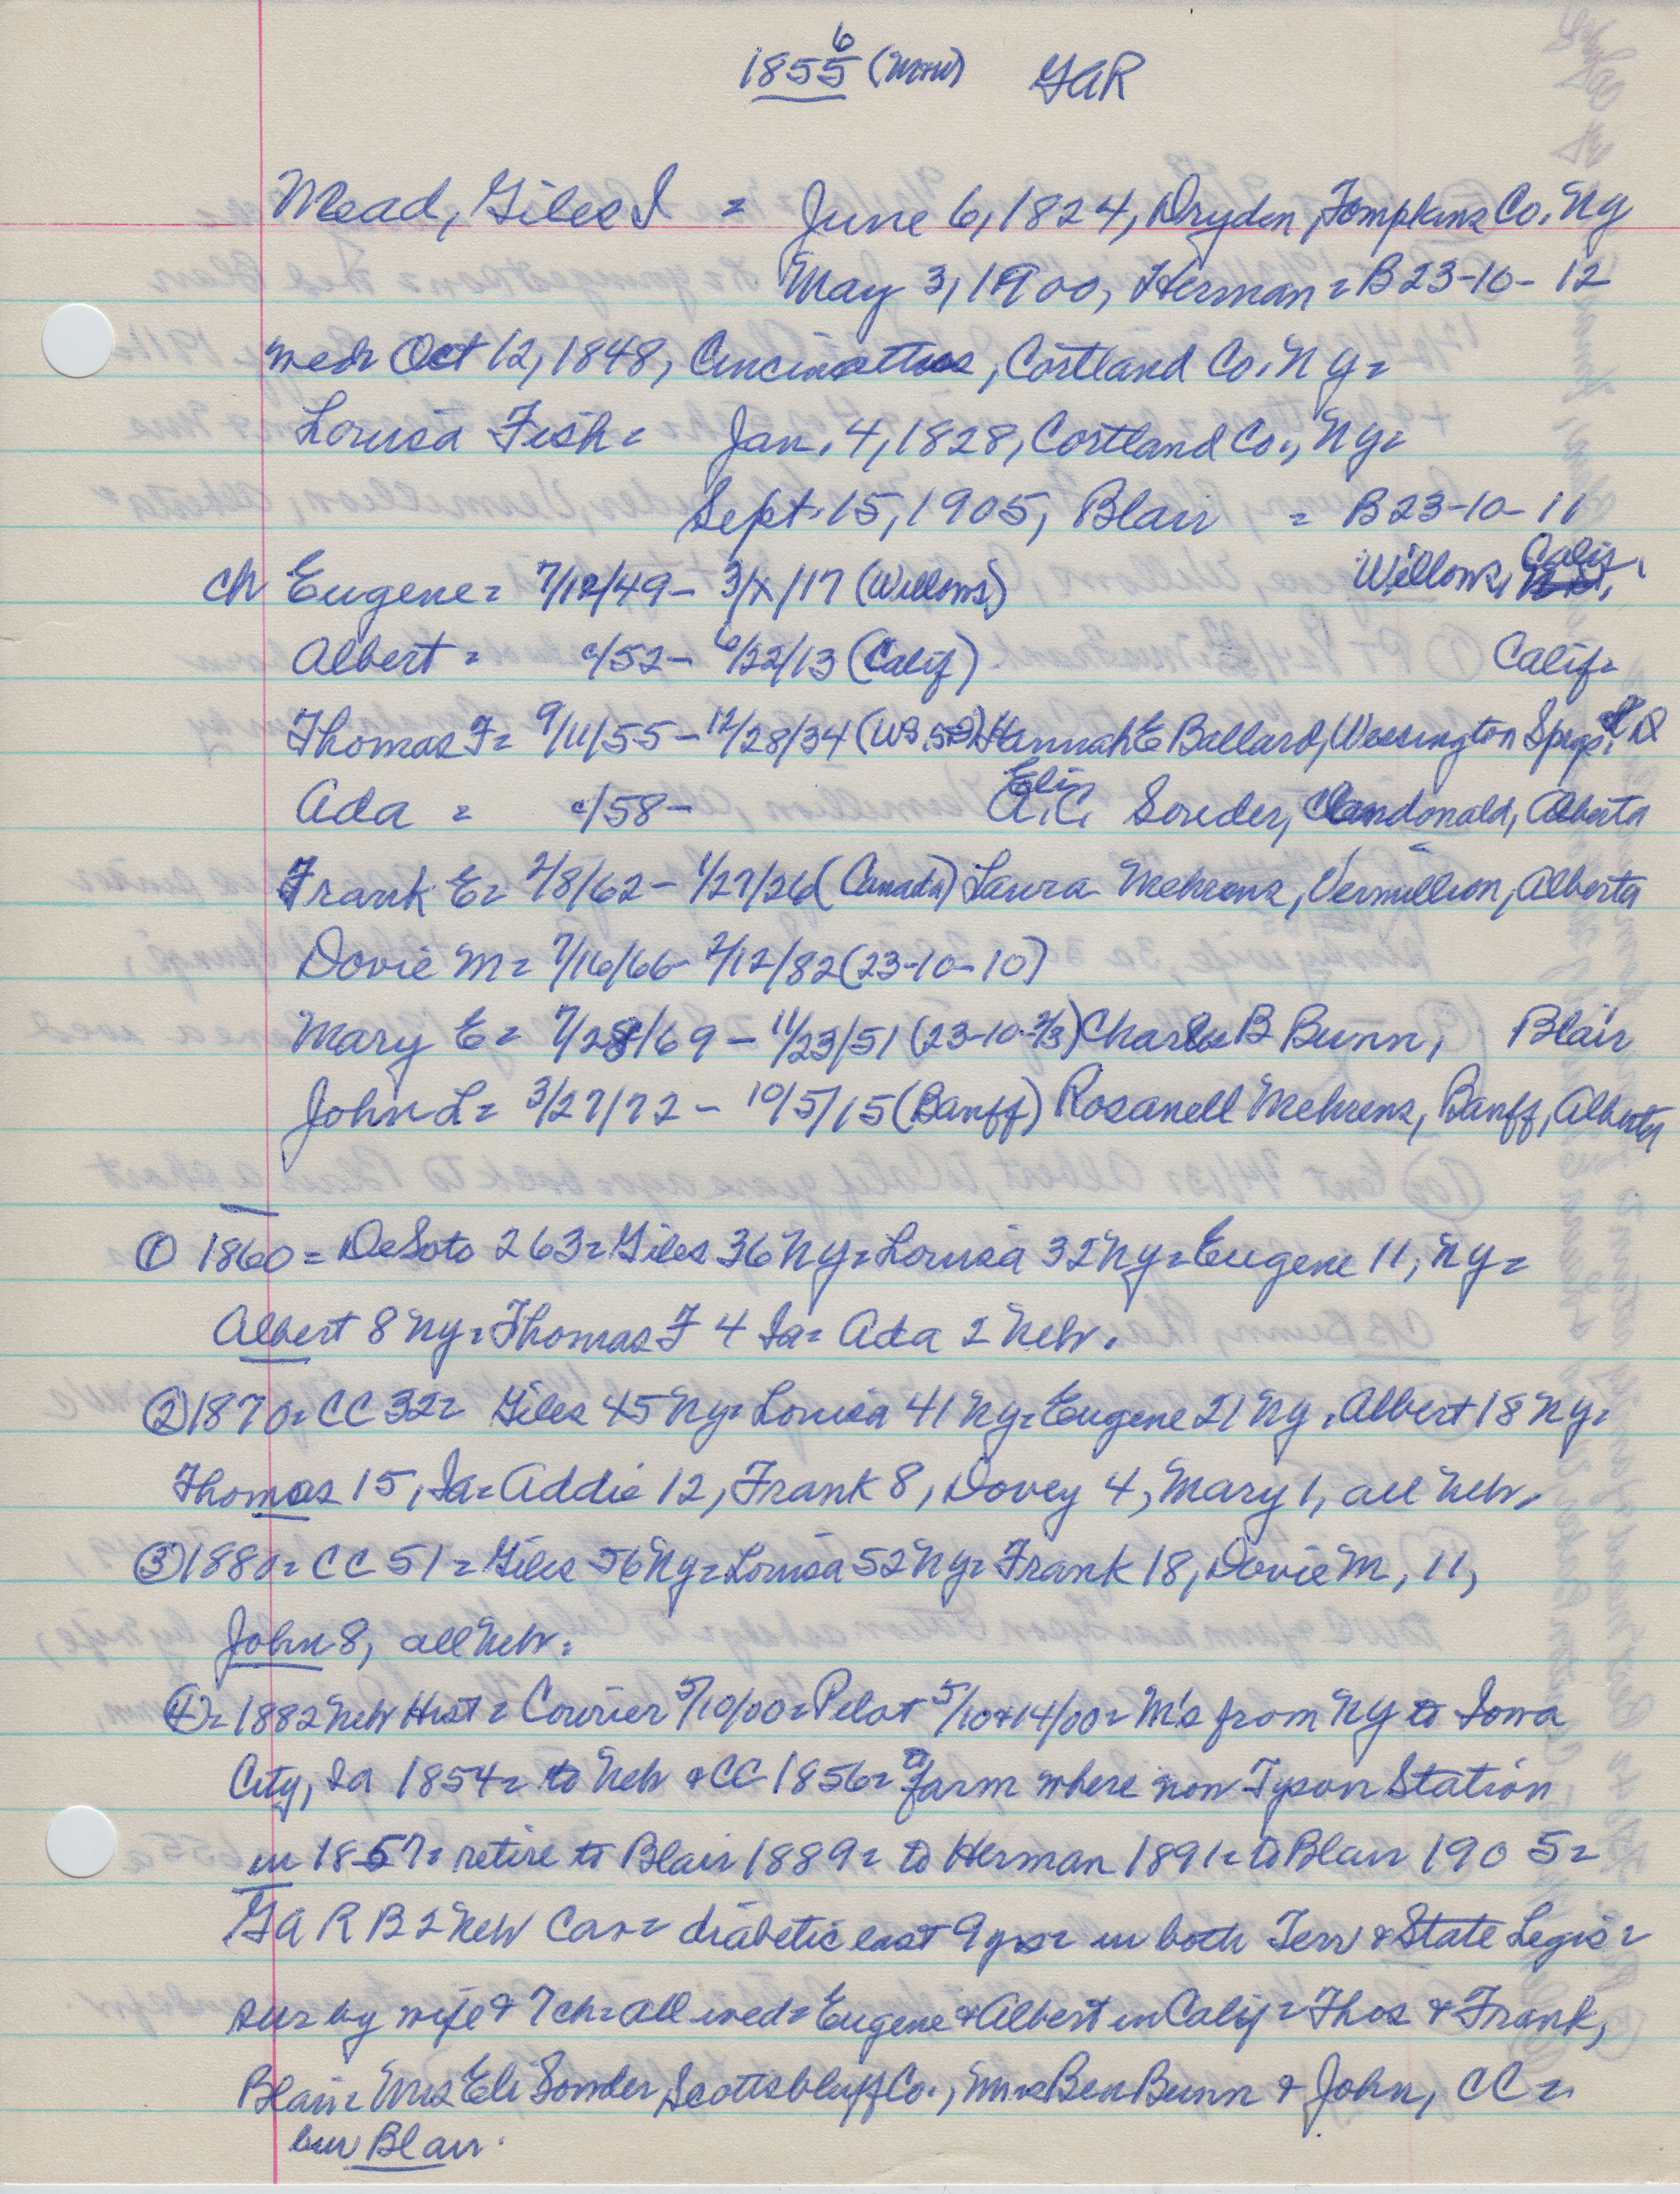 1855 6 (mow) GAR
Mead, Giles I = June 6, 1824, Dryden, Tompkins Co, NY
May 3, 1900, Herman = B23-10-12
wed Oct 12, 1848, Cincinattus, Cortland Co, NY =
Louisa Fish = Jan. 4, 1828, Cortland Co., NY =
Sept. 15, 1905, Blair = B23-10-11
ch Eugene = 7/12/49 - 3/x/17 (Willows) Willows, Calif.
Albert = c/52 - 6/22/13 (Calif) Calif =
Thomas F = 9/11/55 - 12/28/34 (WS, SD) Hannah E Ballard, Wessington Spgs, S D
Ada = c/58 - Eli A.C. Souder, Clandonald, Alberta
Frank E = 2/8/62 - 1/27/26 (Canada) Laura Mehrens, Vermillion, Alberta
Dovie M = 7/16/66 - 2/12/82 (23-10-10)
Mary E = 7/28/69 - 11/23/51 (23-10-2/3) Charles B Bunn, Blair
John L = 3/27/72 - 10/5/15 (Banff) Rosanell Mehrens, Banff, Alberta
① 1860 = DeSoto 263 = Giles 36 NY = Louisa 32 NY = Eugene 11, NY =
Albert 8 NY = Thomas F 4 Ia = Ada 2 Neb.
② 1870 = CC 32 = Giles 45 NY = Louisa 41 NY = Eugene 21 NY, Albert 18 NY =
Thomas 15, Ia = Addie 12, Frank 8, Dovey 4, Mary 1, all Neb.
③ 1880 = CC 51 = Giles 56 NY = Louisa 52 NY = Frank 18, Dovie M, 11,
John 8, all Neb.
④ = 1882 Neb Hist = Courier 5/10/00 = Pilot 5/10 & 14/00 = M's from NY to Iowa
City, Ia 1854 = to Neb & CC 1856 = to farm where now Tyson Station
in 1857 = retire to Blair 1889 = to Herman 1891 = to Blair 1905 =
GAR B 2 Neb Cav = diabetic last 9 yrs = in both Terr & State Legis =
sur by wife & 7 ch = all wed = Eugene & Albert in Calif = Thos & Frank,
Blair = Mrs Eli Souder, Scottsbluff Co., Mrs Ben Bunn & John, CC =
bur Blair.